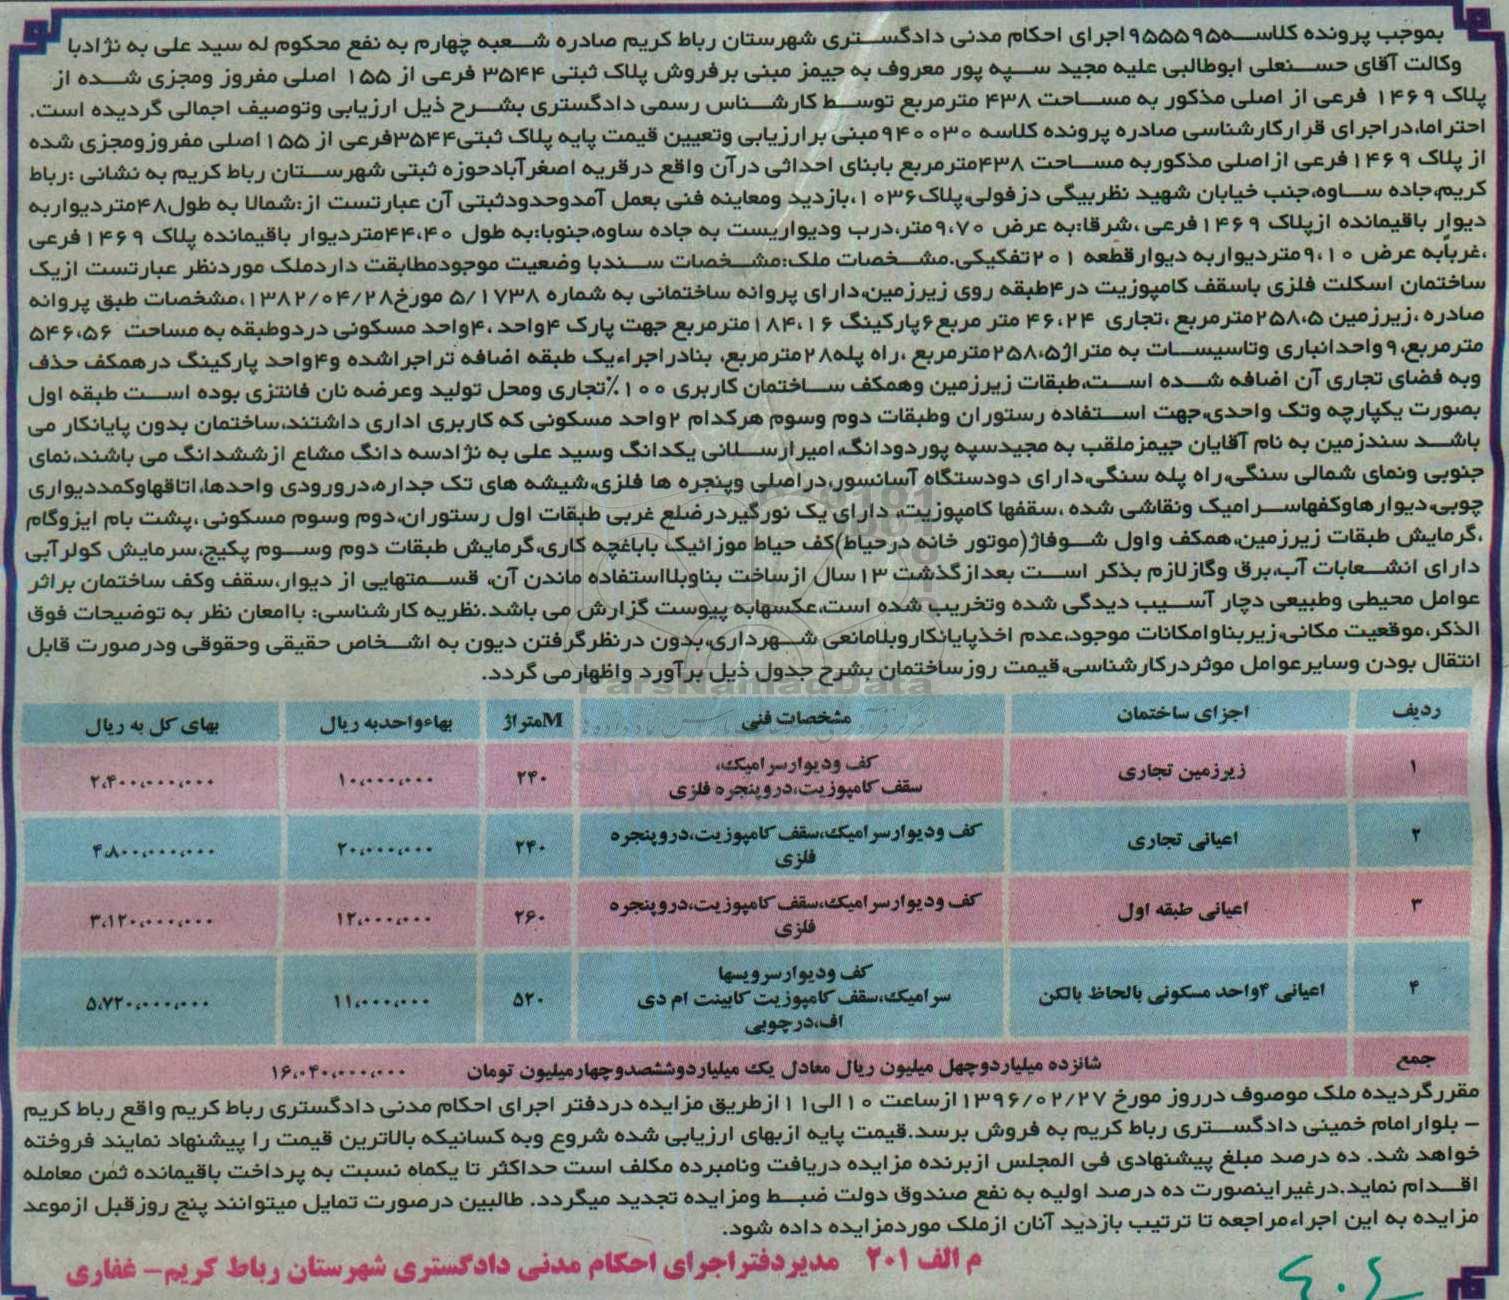 بموجب پرونده کلاسه۹۵۵۵۹۵اجرای احکام مدنی دادگستری شهرستان رباط کریم صادره شعبه چهارم به نفع محکوم له سید علی به نژادبا
وکالت آقای حسنعلی ابوطالبی علیه مجید سپه پور معروف به جیمز مبنی برفروش پلاک ثبتی ۳۵۴۴ فرعی از ۱۵۵ اصلی مفروز ومجزی شده از
پلاک ۱۴۶۹ فرعی از اصلی مذکور به مساحت ۴۳۸ مترمربع توسط کارشناس رسمی دادگستری بشرح ذیل ارزیابی وتوصیف اجمالی گردیده است.
احتراما،دراجرای قرارکارشناسی صادره پرونده کلاسه ۹۴۰۰۳۰مبنی برارزیابی وتعیین قیمت پایه پلاک ثبتی۳۵۴۴فرعی از ۱۵۵اصلی مفروزومجزی شده
از پلاک ۱۴۶۹فرعی ازاصلی مذکوربه مساحت ۴۳۸مترمربع بابنای احداثی درآن واقع درقریه اصغرآبادحوزه ثبتی شهرستان رباط کریم به نشانی :رباط
کریم،جاده ساوه،جنب خیابان شهید نظربیگی دزفولی،پلاک۱۰۳۶،بازدید ومعاینه فنی بعمل آمدوحدودثبتی آن عبارتست از:شمالا به طول۴۸متردیواربه
دیوار باقیمانده ازپلاک ۱۴۶۹فرعی ،شرقا:به عرض ۹،۷۰متر،درب ودیواریست به جاده ساوه،جنوبا:به طول ۴۴،۴۰متردیوار باقیمانده پلاک ۱۴۶۹فرعی
،غرباًبه عرض ۹،۱۰متردیواربه دیوارقطعه ۲۰۱تفکیکی.مشخصات ملک:مشخصات سندبا وضعیت موجودمطابقت داردملک موردنظر عبارتست ازیک
ساختمان اسکلت فلزی باسقف کامپوزیت در۴طبقه روی زیرزمین،دارای پروانه ساختمانی به شماره ۵/۱۷۳۸ مورخ۱۳۸۲/۰۴/۲۸،مشخصات طبق پروانه
صادره ،زیرزمین ۲۵۸،۵مترمربع ،تجاری ۴۶،۲۴ متر مربع۶پارکینگ ۱۸۴،۱۶مترمربع جهت پارک ۴واحد ،۴واحد مسکونی دردوطبقه به مساحت ۵۴۶،۵۶
مترمربع،۹واحدانباری وتاسیسات به متراژ۲۵۸،۵مترمربع ،راه پله۲۸مترمربع، بنادراجراءیک طبقه اضافه تراجراشده و۴واحد پارکینگ درهمکف حذف
وبه فضای تجاری آن اضافه شده است،طبقات زیرزمین وهمکف ساختمان کاربری ۱۰۰٪تجاری ومحل تولید وعرضه نان فانتزی بوده است طبقه اول
بصورت یکپارچه وتک واحدی،جهت استفاده رستوران وطبقات دوم وسوم هرکدام ۲واحد مسکونی که کاربری اداری داشتند،ساختمان بدون پایانکار می
باشد سندزمین به نام آقایان جیمزملقب به مجیدسپه پوردودانگ،امیرارسلانی یکدانگ وسید علی به نژادسه دانگ مشاع ازششدانگ می باشند،نمای
جنوبی ونمای شمالی سنگی،راه پله سنگی،دارای دودستگاه آسانسور،دراصلی وپنجره ها فلزی،شیشه های تک جداره،درورودی واحدها،اتاقهاوکمددیواری
چوبی،دیوارهاوکفهاسرامیک ونقاشی شده ،سقفها کامپوزیت، دارای یک نورگیردرضلع غربی طبقات اول رستوران،دوم وسوم مسکونی ،پشت بام ایزوگام
،گرمایش طبقات زیرزمین،همکف واول شوفاژ(موتور خانه درحیاط)کف حیاط موزائیک باباغچه کاری،گرمایش طبقات دوم وسوم پکیج،سرمایش کولرآبی
دارای انشعابات آب،برق وگازلازم بذکر است بعدازگذشت ۱۳سال ازساخت بناوبلااستفاده ماندن آن، قسمتهایی از دیوار،سقف وکف ساختمان براثر
عوامل محیطی وطبیعی دچار آسیب دیدگی شده وتخریب شده است،عکسهابه پیوست گزارش می باشد.نظریه کارشناسی: باامعان نظر به توضیحات فوق
الذکر،موقعیت مکانی،زیربناوامکانات موجود،عدم اخذپایانکاروبلامانعی شهرداری،بدون درنظرگرفتن دیون به اشخاص حقیقی وحقوقی ودرصورت قابل
انتقال بودن وسایرعوامل موثردرکارشناسی،قیمت روزساختمان بشرح جدول ذیل برآورد واظهارمی گردد.
ParsNamadData
ردیف اجزای ساختمان مشخصات فنی Mمتراژ بهاءواحدبه ریال بهای کل به ریال
۱ زیرزمین تجاری کف ودیوارسرامیک، سقف کامپوزیت،دروپنجره فلزی ۲۴۰ ۱۰،۰۰۰،۰۰۰ ۲،۴۰۰،۰۰۰،۰۰۰
۲ اعیانی تجاری کف ودیوارسرامیک،سقف کامپوزیت،دروپنجره فلزی ۲۴۰ ۲۰،۰۰۰،۰۰۰ ۴،۸۰۰،۰۰۰،۰۰۰
۳ اعیانی طبقه اول کف ودیوارسرامیک،سقف کامپوزیت،دروپنجره فلزی ۲۶۰ ۱۲،۰۰۰،۰۰۰ ۳،۱۲۰،۰۰۰،۰۰۰
۴ اعیانی ۴واحد مسکونی بالحاظ بالکن کف ودیوارسرویسها سرامیک،سقف کامپوزیت کابینت ام دی اف،درچوبی ۵۲۰ ۱۱،۰۰۰،۰۰۰ ۵،۷۲۰،۰۰۰،۰۰۰
جمع شانزده میلیاردوچهل میلیون ریال معادل یک میلیاردوششصدوچهارمیلیون تومان ۱۶،۰۴۰،۰۰۰،۰۰۰
مقررگردیده ملک موصوف درروز مورخ ۱۳۹۶/۰۲/۲۷ازساعت ۱۰الی۱۱ازطریق مزایده دردفتر اجرای احکام مدنی دادگستری رباط کریم واقع رباط کریم
– بلوارامام خمینی دادگستری رباط کریم به فروش برسد.قیمت پایه ازبهای ارزیابی شده شروع وبه کسانیکه بالاترین قیمت را پیشنهاد نمایند فروخته
خواهد شد. ده درصد مبلغ پیشنهادی فی المجلس ازبرنده مزایده دریافت ونامبرده مکلف است حداکثر تا یکماه نسبت به پرداخت باقیمانده ثمن معامله
اقدام نماید.درغیراینصورت ده درصد اولیه به نفع صندوق دولت ضبط ومزایده تجدید میگردد. طالبین درصورت تمایل میتوانند پنج روزقبل ازموعد
مزایده به این اجراءمراجعه تا ترتیب بازدید آنان ازملک موردمزایده داده شود.
م الف ۲۰۱ مدیردفتراجرای احکام مدنی دادگستری شهرستان رباط کریم– غفاری